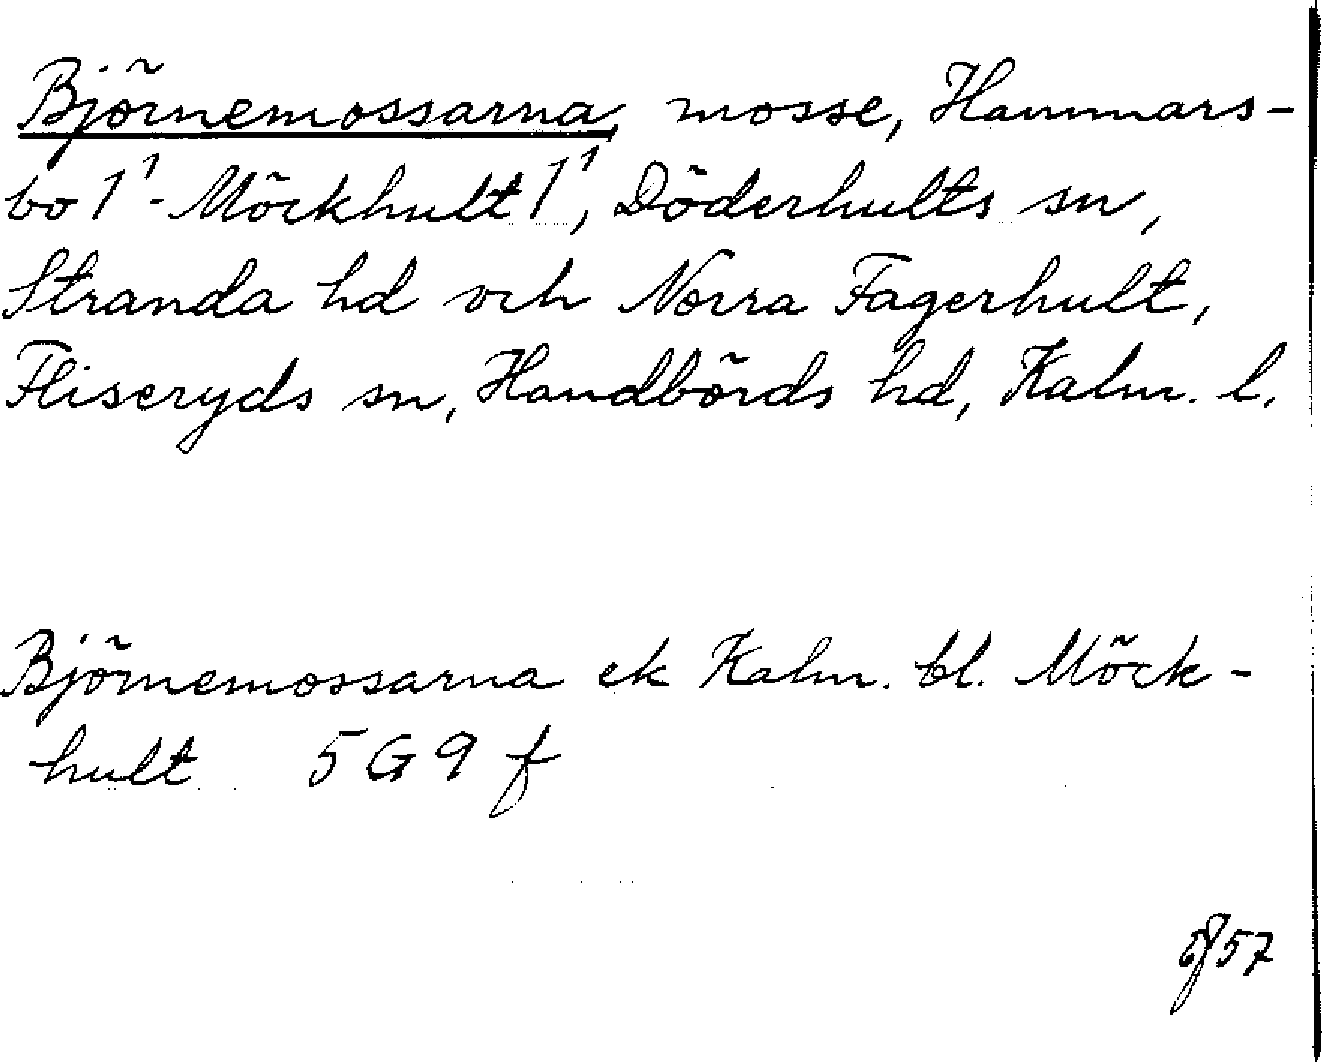 Björnemossarna, mosse, Hammars-
bo 1¹-Möckhult 1¹, Döderhults sn,
Stranda hd och Norra Fagerhult,
Fliseryds sn, Handbörds hd, Kalm. l.
Björnemossarna ek Kalm. bl. Möck-
hult 5G9 f
57